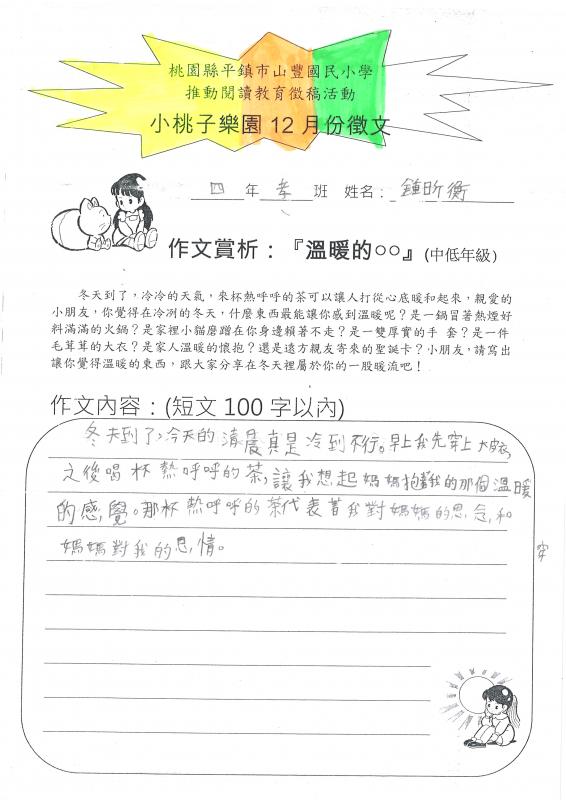 桃園縣平鎮市山豐國民小學
推動閱讀教育徵稿活動
小桃子樂園 12 月份徵文
四 年 孝 班 姓名: 鍾昕衡
作文賞析:『溫暖的○○』(中低年級)
冬天到了,冷冷的天氣,來杯熱呼呼的茶可以讓人打從心底暖和起來,親愛的
小朋友,你覺得在冷冽的冬天,什麼東西最能讓你感到溫暖呢?是一鍋冒著熱煙好
料滿滿的火鍋?是家裡小貓磨蹭在你身邊賴著不走?是一雙厚實的手 套?是一件
毛茸茸的大衣?是家人溫暖的懷抱?還是遠方親友寄來的聖誕卡?小朋友,請寫出
讓你覺得溫暖的東西,跟大家分享在冬天裡屬於你的一股暖流吧!
作文內容:(短文 100 字以內)
冬天到了,今天的清晨真是冷到不行。早上我先穿上大衣,
之後喝杯熱呼呼的茶,讓我想起媽媽抱著我的那個溫暖
的感覺。那杯熱呼呼的茶代表著我對媽媽的思念,和
媽媽對我的恩情。
穿